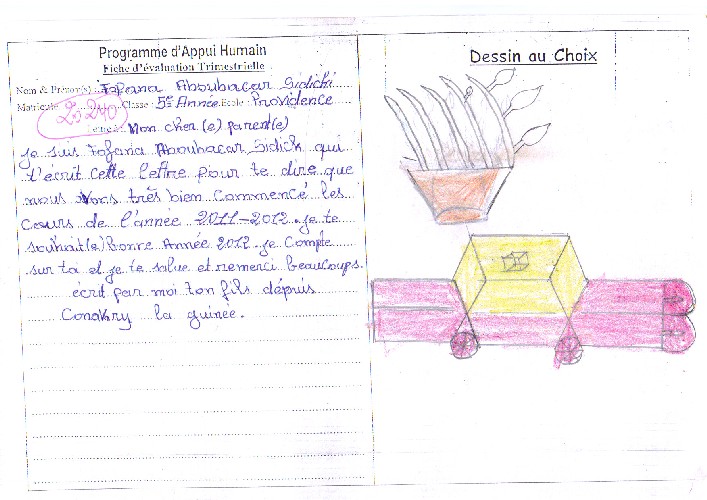 Programme d'Appui Humain
Fiche d'évaluation Trimestrielle
Nom & Prénom(s) : Fofana Aboubacar Sidiki
Matricule 25240 Classe : 5e Année Ecole : Providence
Mon cher (e) parent(e)
je suis Fofana Aboubacar Sidick qui
t'écrit cette lettre pour te dire que
nous Avons très bien commencé les
cours de l'année 2011-2012. je te
souhait(e) Bonne Année 2012. je compte
sur toi et je te salue et remerci beaucoups.
écrit par moi ton fils dépuis
Conakry la guinée.
Dessin au Choix